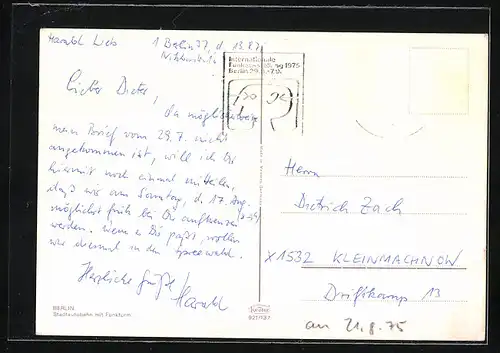 Harald Lieb
1 Berlin 37, d. 13.8.75
Internationale
Funkausstellung 1975
Berlin 29.8.-7.9.
Lieber Dieter,
da möglicherweise
mein Brief vom 29.7. nicht
angekommen ist, will ich Dir
hiermit noch einmal mitteilen,
daß wir am Sonntag, d. 17. Aug.
möglichst früh bei Dir aufkreuzen
werden. Wenn es Dir paßt, wollen
wir diesmal in den Spreewald.
Herzliche Grüße!
Harald
Herrn
Dietrich Zach
X1532 KLEINMACHNOW
Driftkamp 13
BERLIN
Stadtautobahn mit Funkturm
Krüger
an 21.8.75